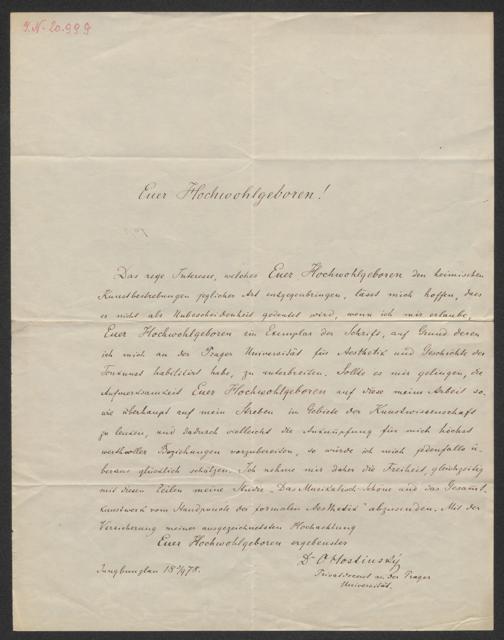 J.N. 20.999
Euer Hochwohlgeboren!
Das rege Interesse, welches Euer Hochwohlgeboren den heimischen
Kunstbestrebungen jeglicher Art entgegenbringen, lässt mich hoffen, dass
es nicht als Unbescheidenheit gedeutet wird, wenn ich mir erlaube,
Euer Hochwohlgeboren ein Exemplar der Schrift, auf Grund deren
ich mich an der Prager Universität für Aesthetik und Geschichte der
Tonkunst habilitirt habe, zu unterbreiten. Sollte es mir gelingen, die
Aufmerksamkeit Euer Hochwohlgeboren auf diese meine Arbeit so
wie überhaupt auf mein Streben im Gebiete der Kunstwissenschaft
zu lenken, und dadurch vielleicht die Anknüpfung für mich höchst
werthvoller Beziehungen vorzubereiten, so würde ich mich jedenfalls ü-
beraus glücklich schätzen. Ich nehme mir daher die Freiheit gleichzeitig
mit diesen Zeilen meine Studie „Das Musikalisch-Schöne und das Gesamt-
kunstwerk vom Standpuncte der formalen Aesthetik" abzusenden. Mit der
Versicherung meiner ausgezeichnetsten Hochachtung
Euer Hochwohlgeboren ergebenster
Dr O Hostinský
Privatdocent an der Prager
Universität.
Jungbunzlau 78.